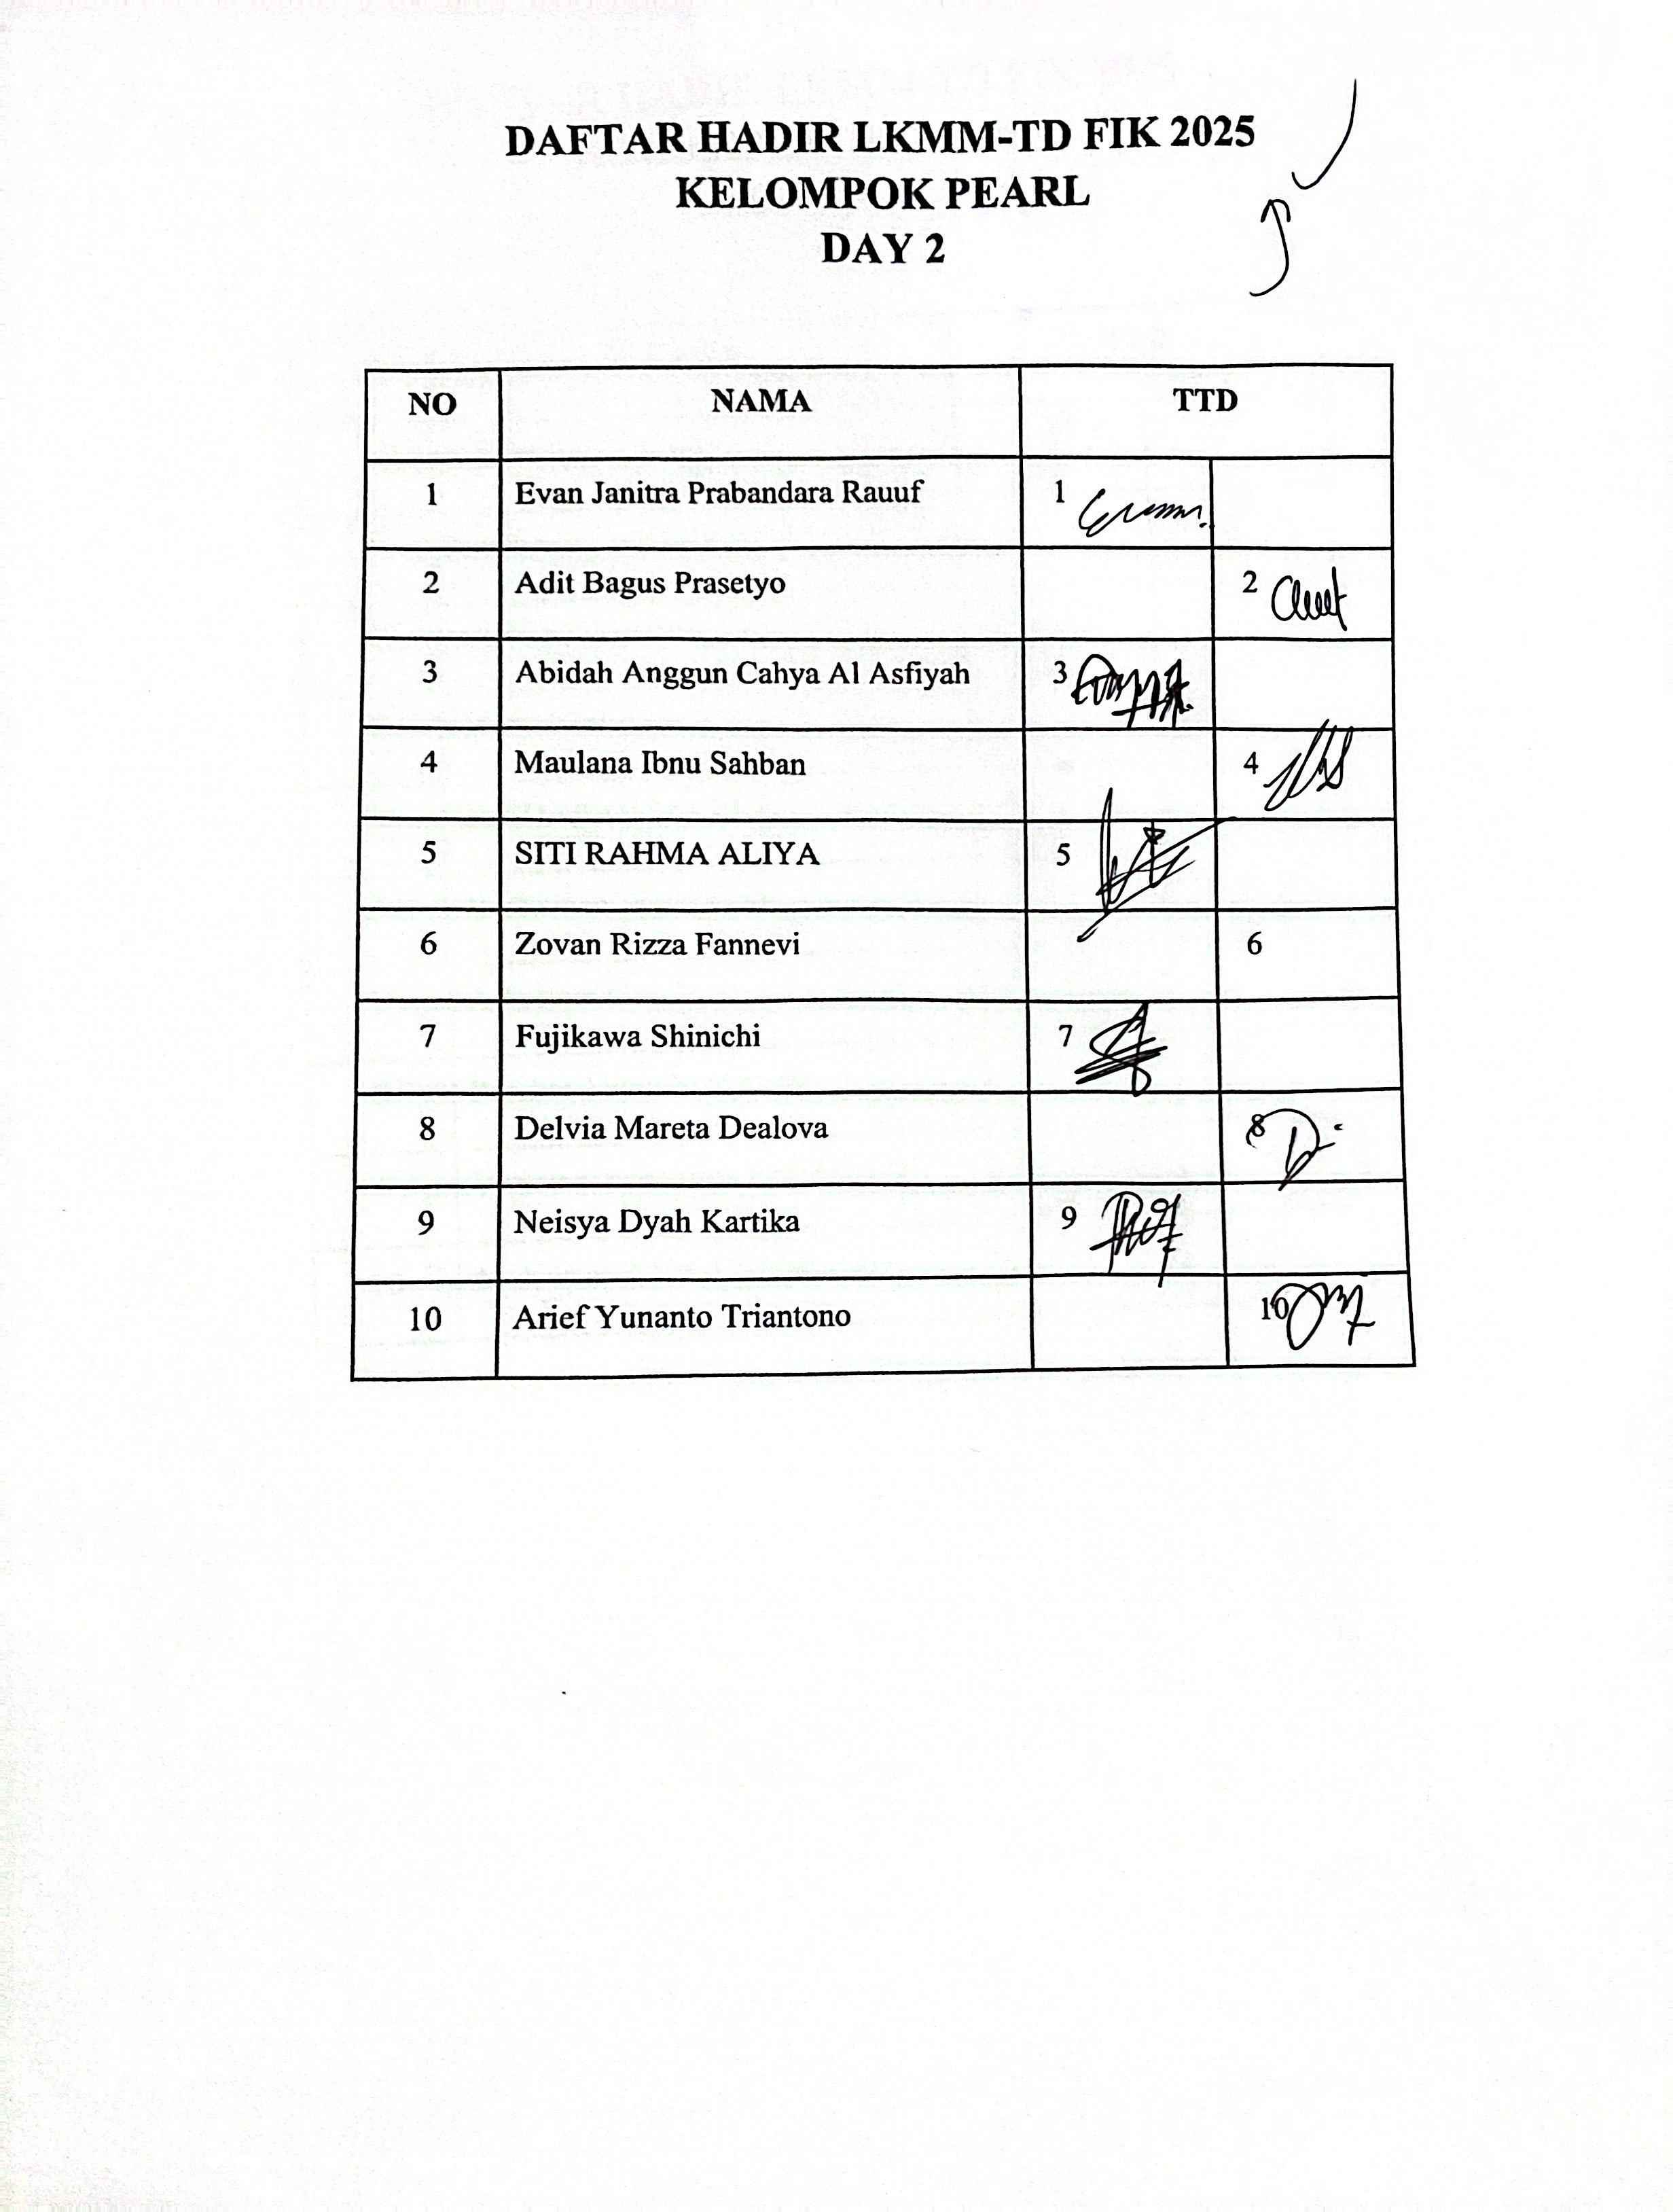 DAFTAR HADIR LKMM-TD FIK 2025
KELOMPOK PEARL
DAY 2
NO NAMA TTD
1 Evan Janitra Prabandara Rauuf 1
2 Adit Bagus Prasetyo 2
3 Abidah Anggun Cahya Al Asfiyah 3
4 Maulana Ibnu Sahban 4
5 SITI RAHMA ALIYA 5
6 Zovan Rizza Fannevi 6
7 Fujikawa Shinichi 7
8 Delvia Mareta Dealova 8
9 Neisya Dyah Kartika 9
10 Arief Yunanto Triantono 10